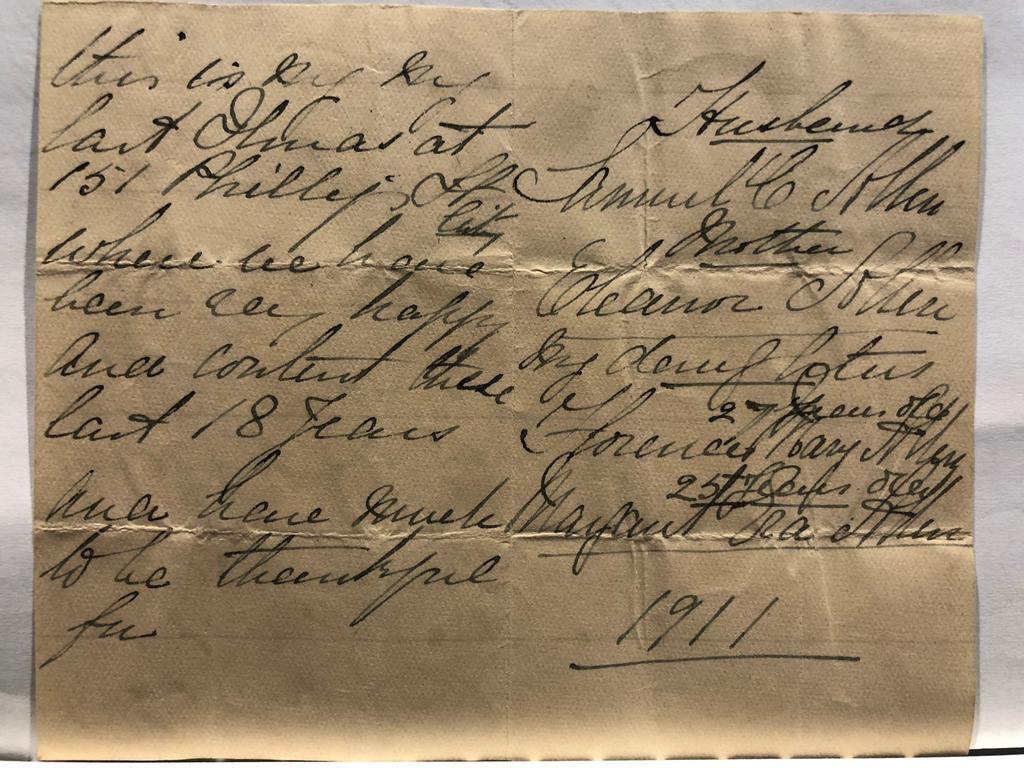 this is my my
last Xmas at
151 Phillip St
City
where we have
been very happy
and content these
last 18 Years
and have much
to be thankful
for
Husband
Samuel C Allen
Mother
Eleanor Allen
my daughters
27 years old
Florence Mary Allen
25 Years old
Margaret Allen
1911